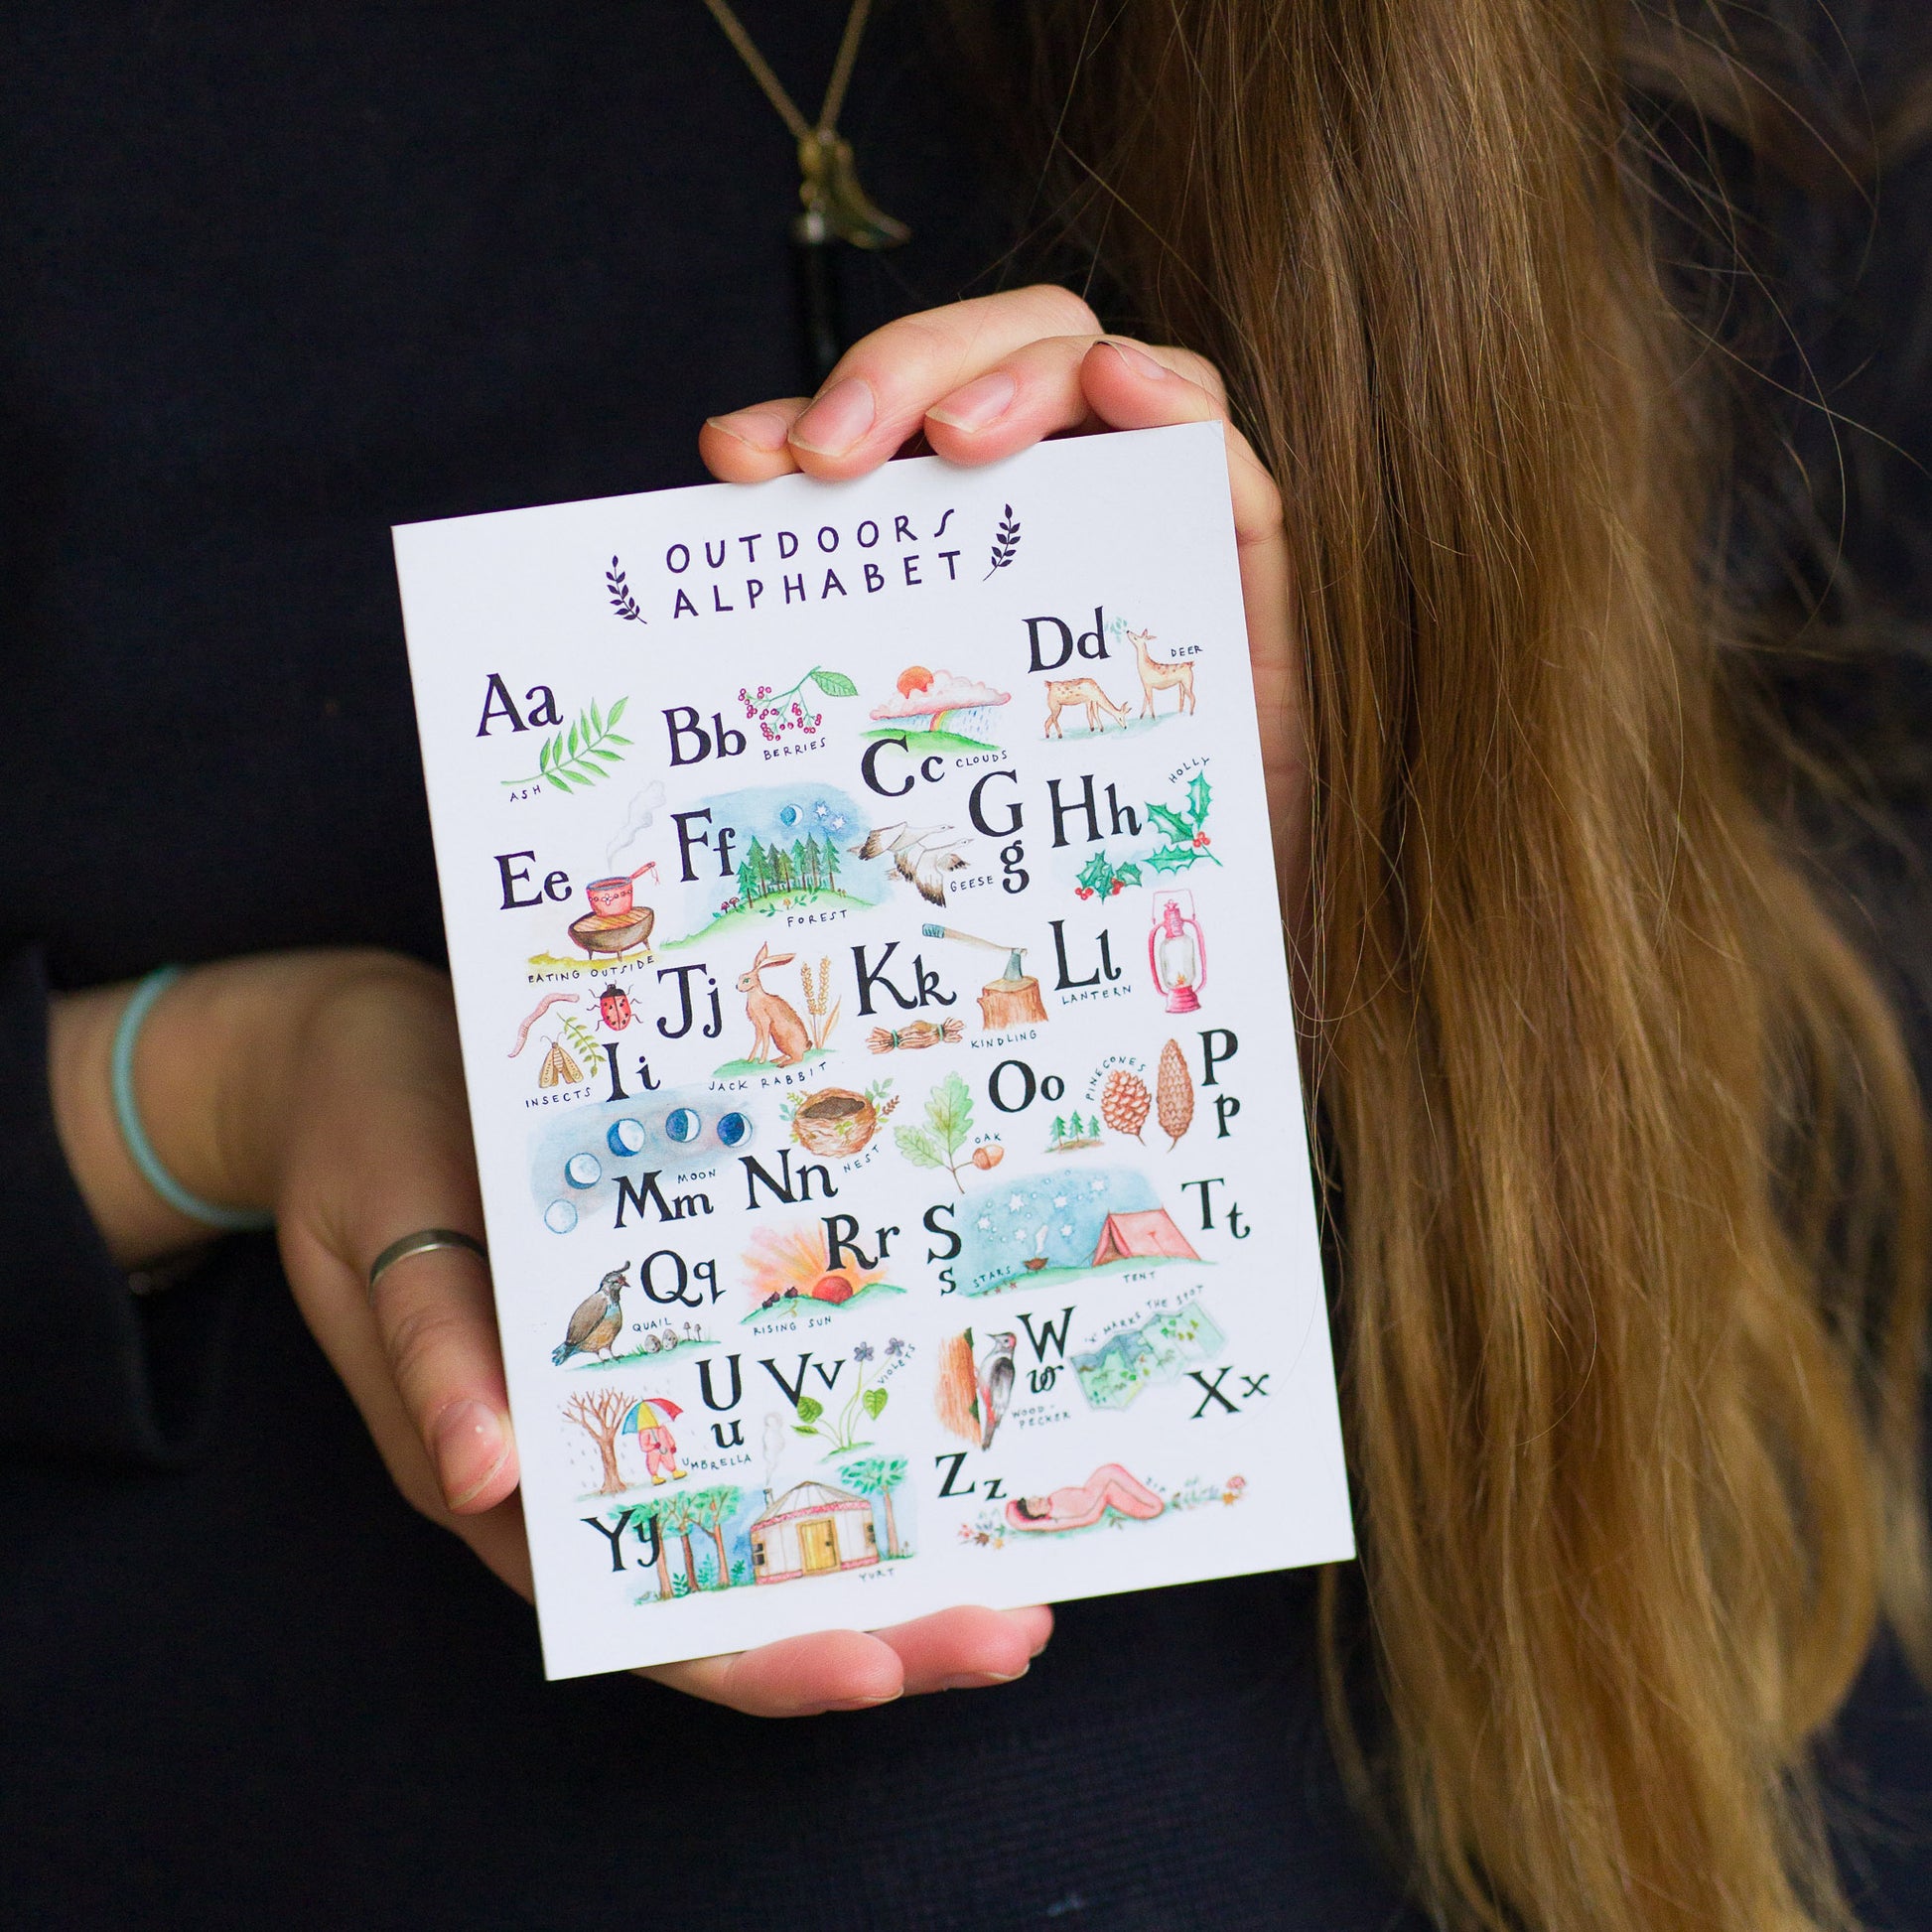 OUTDOORS
ALPHABET
Aa
ASH
Bb
BERRIES
Cc CLOUDS
Dd
DEER
Ee
EATING OUTSIDE
Ff
FOREST
G
g
GEESE
Hh
HOLLY
Ii
INSECTS
Jj
JACK RABBIT
Kk
KINDLING
Ll
LANTERN
Mm
MOON
Nn
NEST
Oo
OAK
P
p
PINECONES
Qq
QUAIL
Rr
RISING SUN
S
s
STARS
Tt
TENT
U
u
UMBRELLA
Vv
VIOLETS
W
w
WOOD-
PECKER
'X' MARKS THE SPOT
Xx
Yy
YURT
Zz